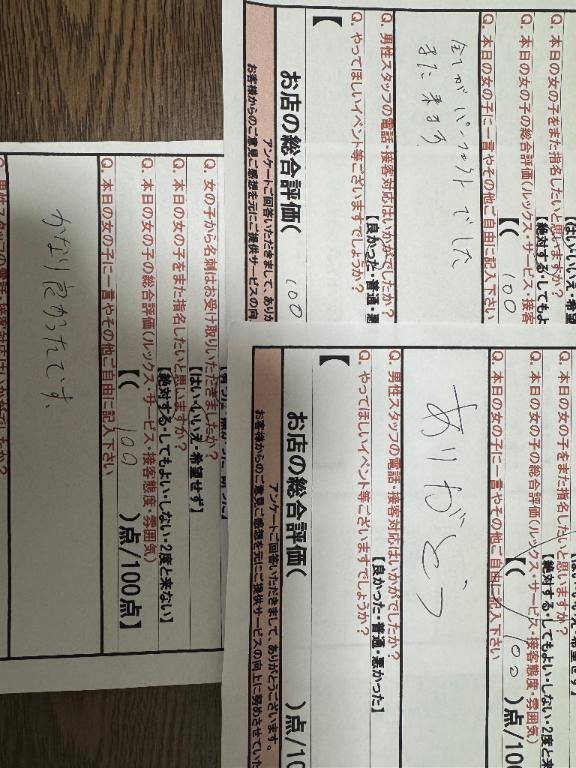 Q. 本日の女の子をまた指名したいと思いますか?
【絶対する・してもよ
Q. 本日の女の子の総合評価(ルックス・サービス・接客
【( 100
Q. 本日の女の子に一言やその他ご自由に記入下さい
全てがパーフェクトでした
また来ます
Q. 男性スタッフの電話・接客対応はいかがでしたか?
【良かった・普通・悪
Q. やってほしいイベント等ございますでしょうか?
【
お店の総合評価( 100
アンケートご回答いただきまして、ありが
お客様からのご意見ご感想を元にご提供サービスの向
Q. 女の子から名刺はお受け取りいただきましたか?
【はい・いいえ・希望せず】
Q. 本日の女の子をまた指名したいと思いますか?
【絶対する・してもよい・しない・2度と来ない】
Q. 本日の女の子の総合評価(ルックス・サービス・接客態度・雰囲気)
【( 100 )点/100点】
Q. 本日の女の子に一言やその他ご自由に記入下さい
かなり良かったです。
Q. 本日の女の子をまた指名したいと思いますか?
【絶対する・してもよい・しない・2度と来
Q. 本日の女の子の総合評価(ルックス・サービス・接客態度・雰囲気)
【( 100 )点/100
Q. 本日の女の子に一言やその他ご自由に記入下さい
ありがとう
Q. 男性スタッフの電話・接客対応はいかがでしたか?
【良かった・普通・悪かった】
Q. やってほしいイベント等ございますでしょうか?
【
お店の総合評価( )点/10
アンケートご回答いただきまして、ありがとうございます。
お客様からのご意見ご感想を元にご提供サービスの向上に努めさせていた